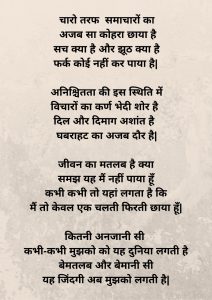 चारो तरफ  समाचारों का
अजब सा कोहरा छाया है
सच क्या है और झूठ क्या है
फर्क कोई नहीं कर पाया है|
अनिश्चितता की इस स्थिति में
विचारों का कर्ण भेदी शोर है
दिल और दिमाग अशांत है
घबराहट का अजब दौर है|
जीवन का मतलब है क्या
समझ यह मैं नहीं पाया हूँ
कभी कभी तो यहां लगता है कि
मैं तो केवल एक चलती फिरती छाया हूँ|
कितनी अनजानी सी
कभी-कभी मुझको को यह दुनिया लगती है
बेमतलब और बेमानी सी
यह जिंदगी अब मुझको लगती है|